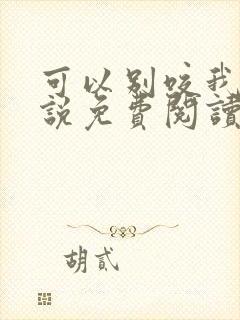 可以别咬我
說免費閱讀
胡貳